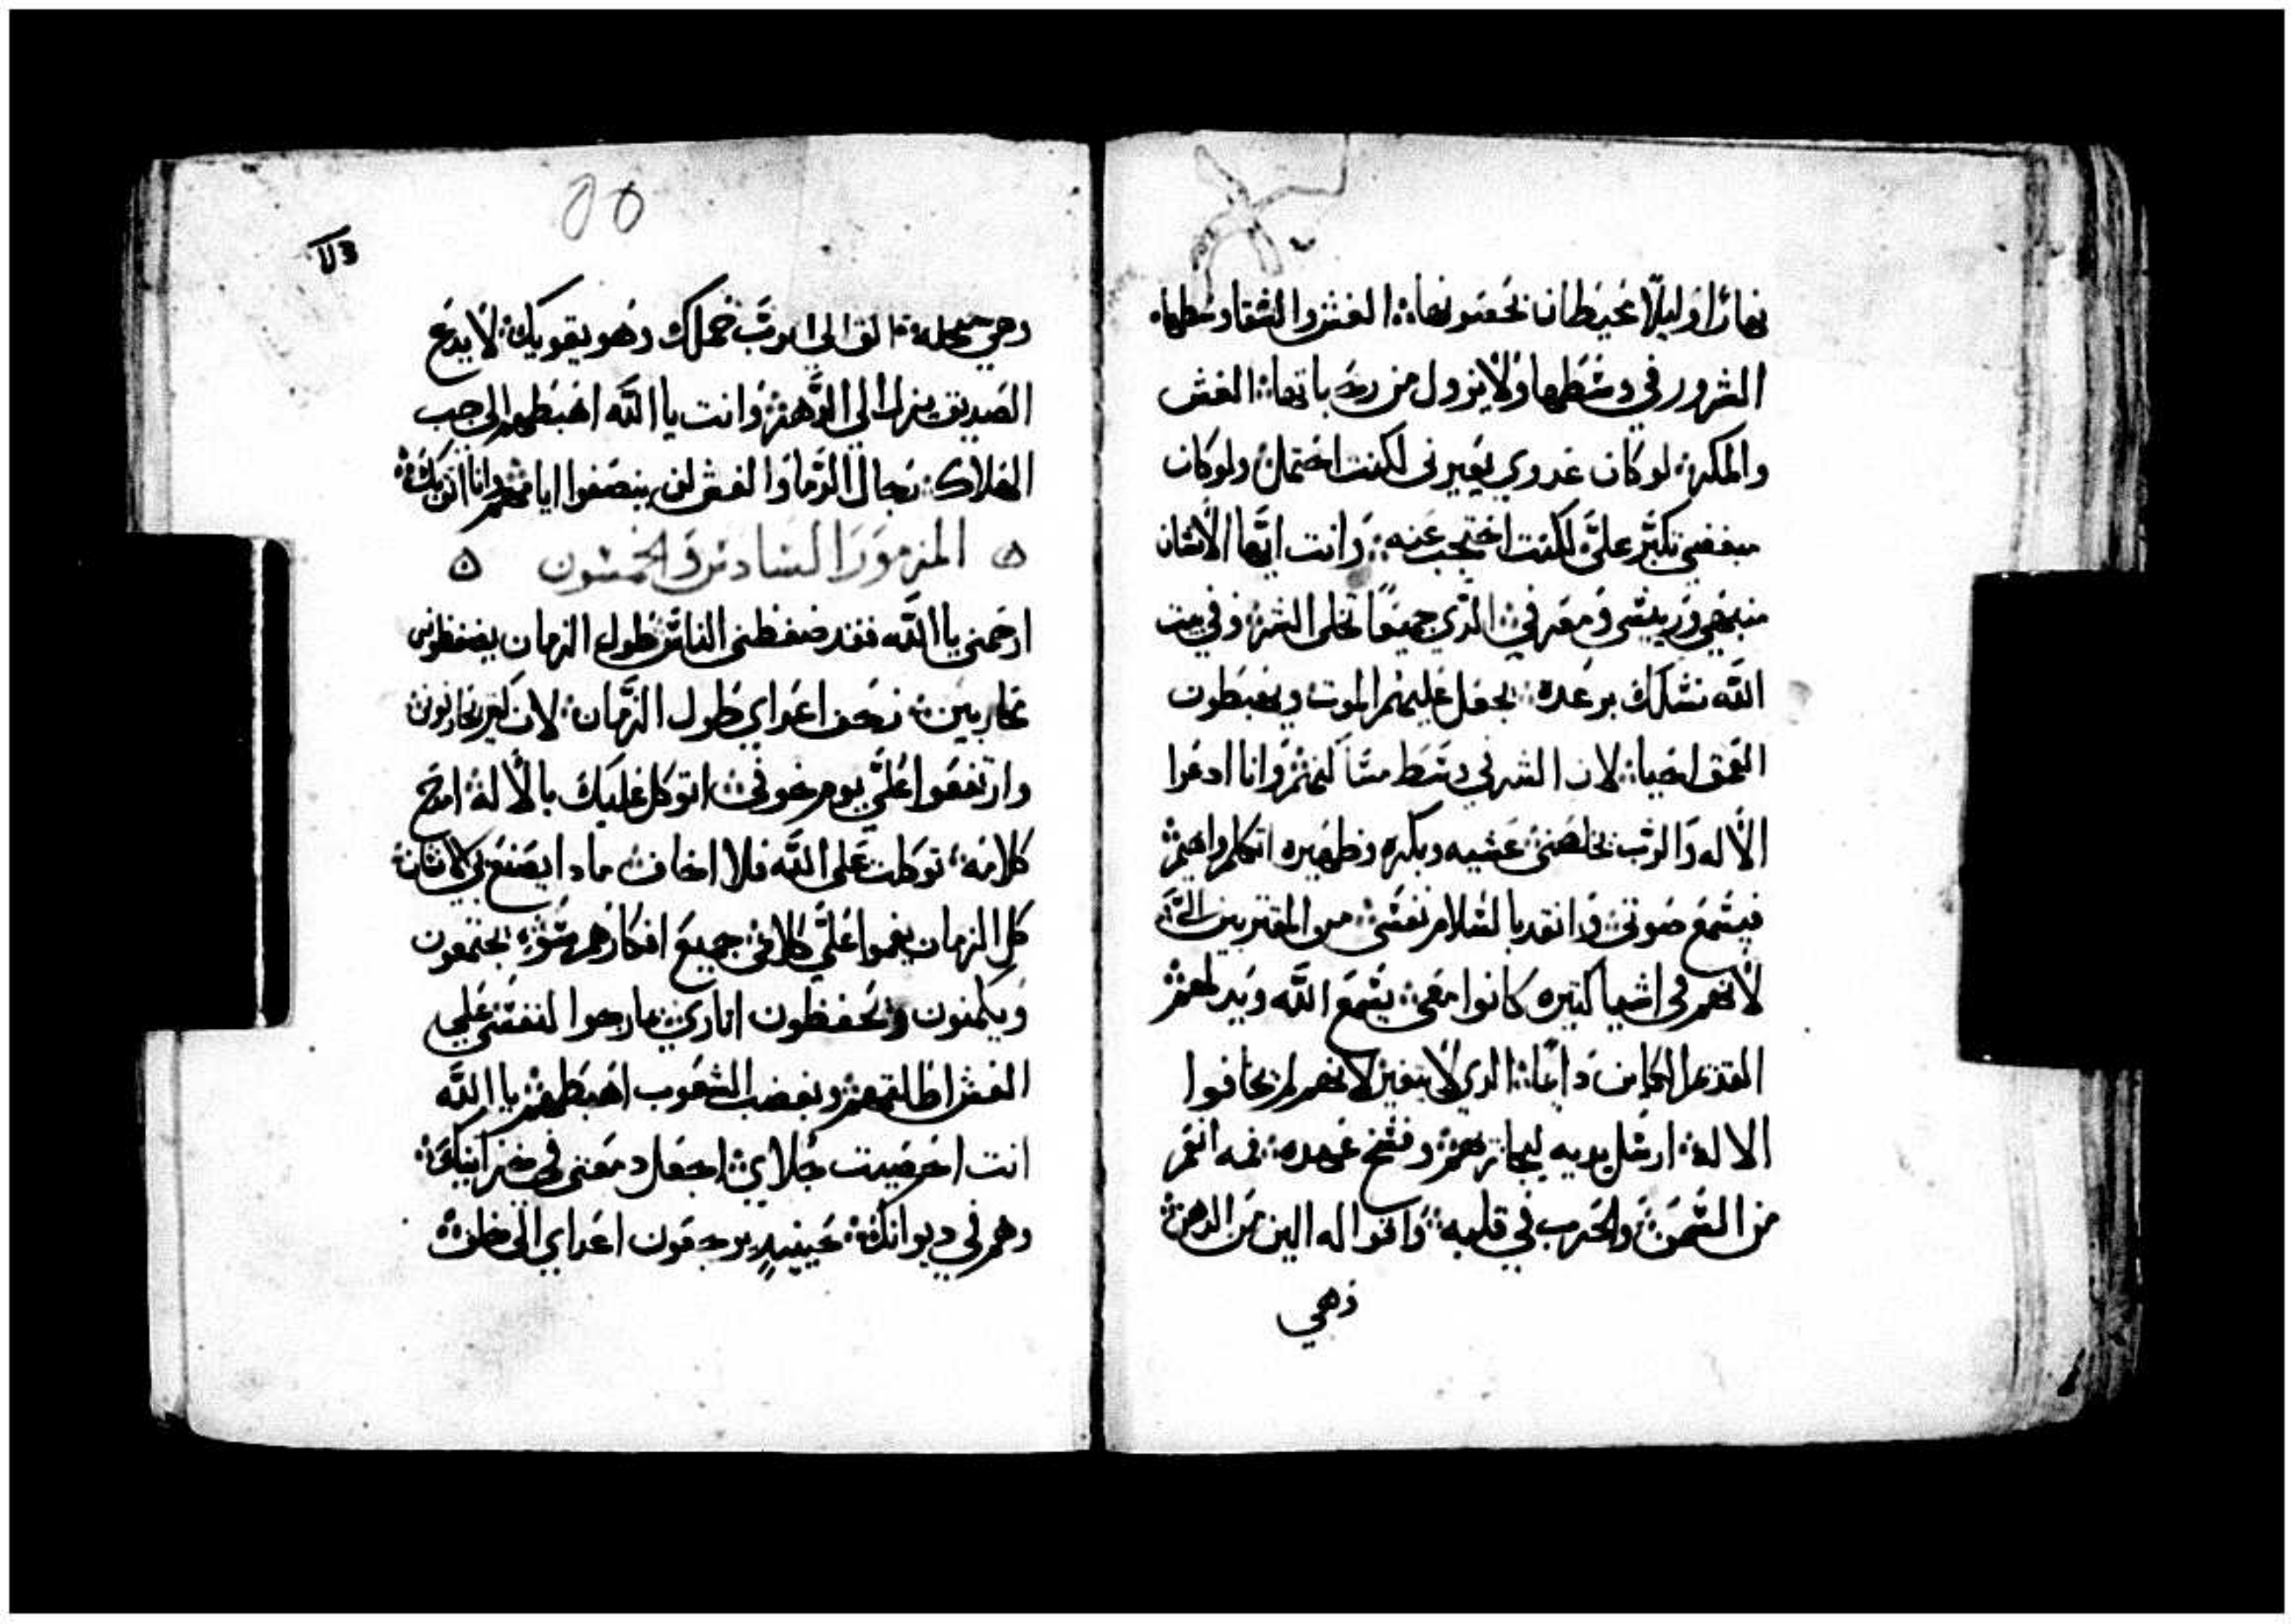 نهارا وليلا يحيطان بحصونها الغش والشقا وسطها
الشرور في وسطها ولا يزول من رحباتها الغش
والمكر لو كان عدوي يعيرني لكنت احتمل ولو كان
مبغضي تكبر علي لكنت احتجب عنه وانت ايها الانسان
نفسي ومعرفي الذي جميعا تحلى وفي بيت
الله نسلك برعدة يجعل عليهم الموت ويهبطون
العمق احيا لان الشر في وسط مساكنهم وانا ادعوا
الاله والرب يخلصني عشيه وبكره وظهيره اتكلم واهيم
فيسمع صوتي وانقد بالسلام نفسي من المقتربين الي
لانهم في اشيا كتيره كانوا معي يسمع الله ويدلهم
القديم الكاين دايما الدي لا يتغير لانهم لم يخافوا
الاله ارسل يديه ليجازيهم وفسخ عهده فمه انعم
من السمن والحرب في قلبه واقواله الين من الدهن
وهي
٥٥
وهي الق الى الرب همك وهو يقويك لا يدع
الصديق يزل الى الدهر وانت يا الله اهبطهم الى جب
الهلاك رجال الدما والغش لن ينصفوا ايامهم وانا اتوكل
المزمور السادس والخمسون
ارحمني يا الله فقد ضغطني الناس طول الزمان يضغطوني
محاربين زحف اعداي طول الزمان لان كثير يحاربون
وارتفعوا علي يوم خوفي اتوكل عليك بالاله امدح
كلامه توكلت على الله فلا اخاف مادا يصنع بي الانسان
كل الزمان يغموا علي كلامي جميع افكارهم سو يجتمعون
ويكمنون ويحفظون اتاري كما رجوا لنفسي علي
الغش اطالتهم وبغضب الشعوب اهبطهم يا الله
انت احصيت جلاي اجعل دمعتي في خزانتك
وهم في ديوانك حينيد يرجعون اعداي الى خلف